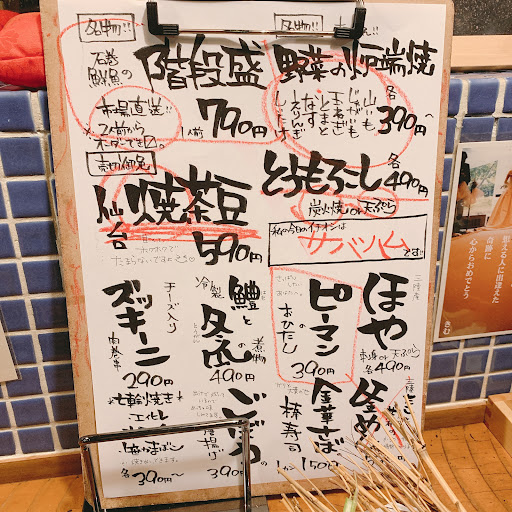 名物!!
石巻
鮮魚の
階段盛
市場直送!!
2人前から
オーダーできます
1人前
790円
名物!!
野菜の炉端焼
山いも
じゃがいも
玉ねぎ
とまと
なす
えりんぎ
しいたけ
各
390円~
売切御免
仙台
焼茶豆
590円
とうもろこし
各
490円
炭火焼 or 天ぷら
私の今日のイチオシは
サバツハム
です!!
三陸産
ほや
刺身 or 天ぷら
各490円
ピーマン
の
おひたし
390円
冷製
鱧と
冬瓜
の
煮物
490円
チーズ入り
ズッキーニ
肉巻串
290円
七輪焼き
エイヒレ
各390円~
ごぼう
の
唐揚げ
390円
金華さば
の
棒寿司
150円
釜め
迎える人に出逢えた
奇跡に
心からおめでとう